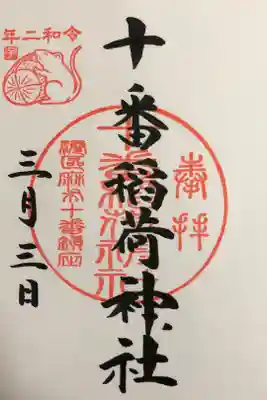 奉拝
十番稲荷神社
十番稲荷神社
港区麻布十番鎮座
令和二年
三月三日